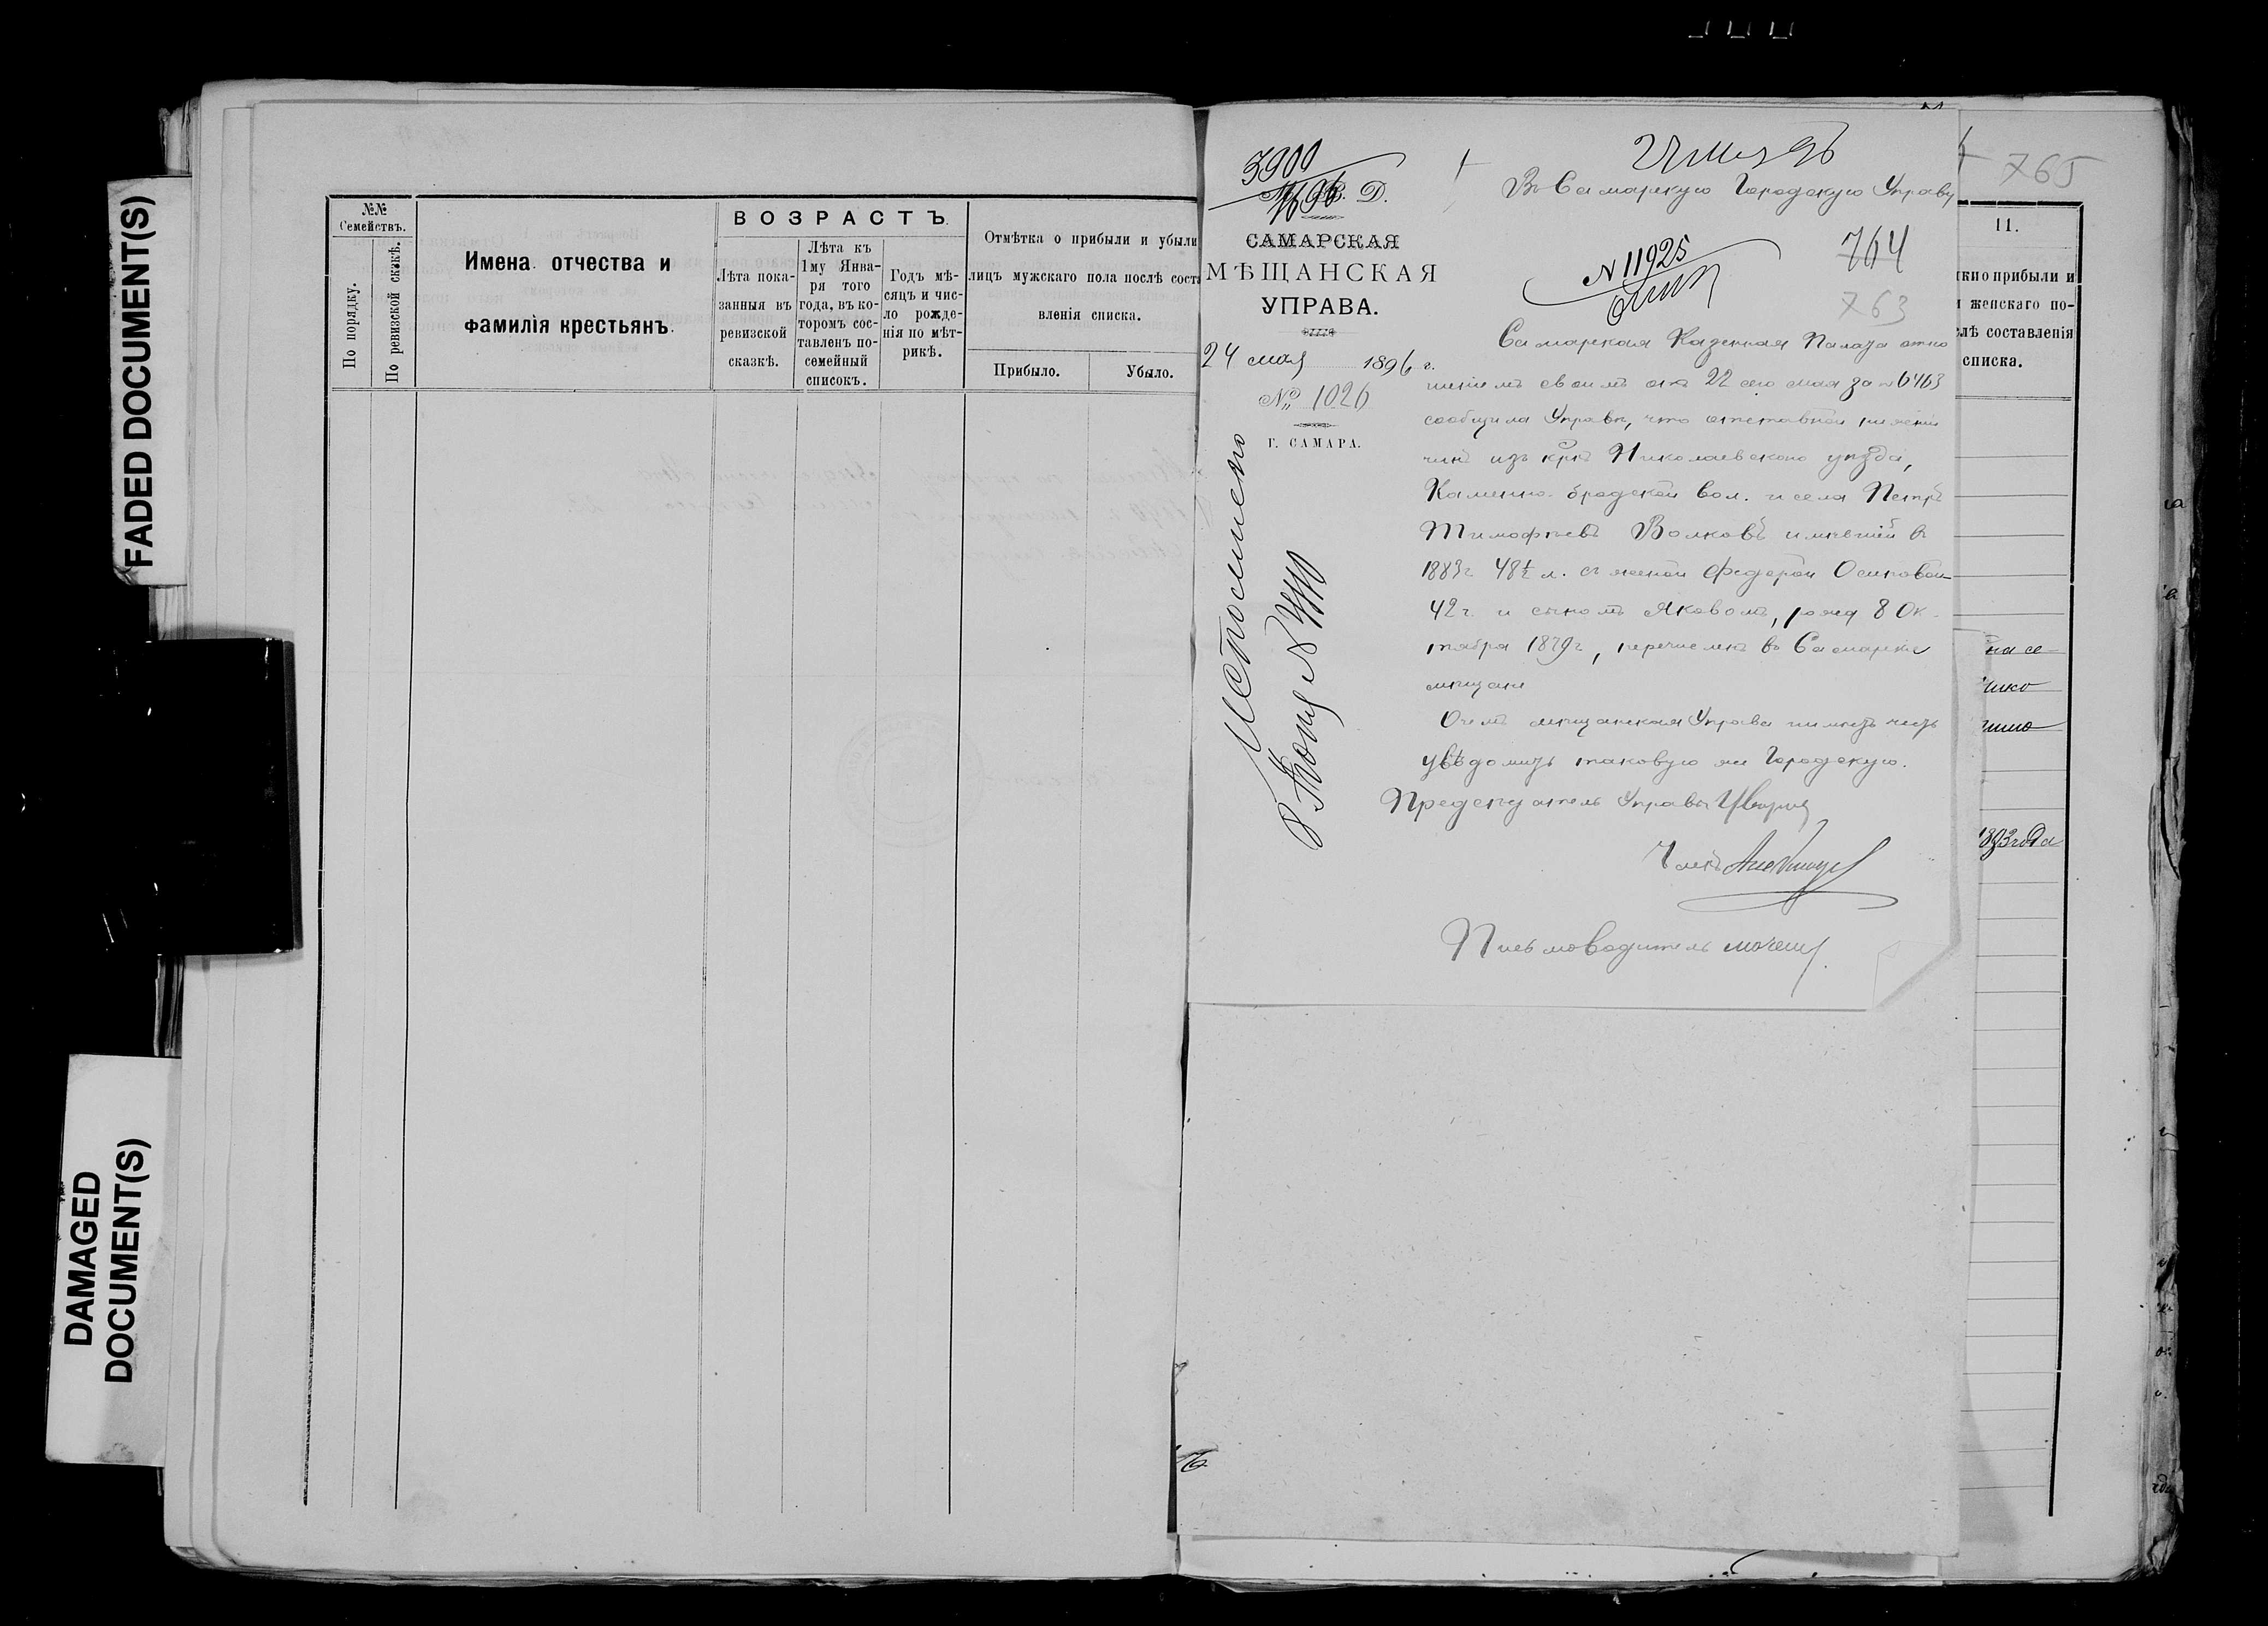 FADED DOCUMENT(S)
DAMAGED
DOCUMENT(S)
№№
Семействъ.
По порядку.
По ревизской сказкѣ.
Имена отчества и
фамилія крестьянъ.
ВОЗРАСТЪ.
Лѣта пока-
занныя въ
ревизской
сказкѣ.
Лѣта къ
1му Янва-
ря того
года, въ ко-
торомъ сос-
тавленъ по-
семейный
списокъ.
Годъ мѣ-
сяцъ и чис-
ло рожде-
нія по мѣт-
рикѣ.
Отмѣтка о прибыли и убыли
лицъ мужскаго пола послѣ соста
вленія списка.
Прибыло.
Убыло.
3900
1896
Д.
САМАРСКАЯ
МѢЩАНСКАЯ
УПРАВА.
24 мая 1896 г.
№ 1026
Г. САМАРА.
Исполнено
27 Мая 96
Въ Самарскую Городскую Управу
N 11925
764
763
Самарская Казенная Палата отно
шеніемъ своимъ отъ 22 сего мая за № 6463
сообщила Управѣ, что отставной нижній
чинъ изъ крѣ Николаевскаго уѣзда,
Каменно-бродской вол. и села Петръ
Тимофѣевъ Волковъ имѣвшій въ
1883 г 48½ л. съ женой Федорой Осиповой
42 г. и сыномъ Яковомъ, рожд 8 Ок-
тября 1879 г, перечисленъ въ Самарскіе
мѣщане
О чемъ мѣщанская Управа имѣетъ честь
увѣдомить таковую же Городскую.
Предсѣдатель Управы
Членъ
Письмоводитель
765
11.
прибыли и
женскаго по-
лѣ составленія
списка.
на се-
чико
1893 года